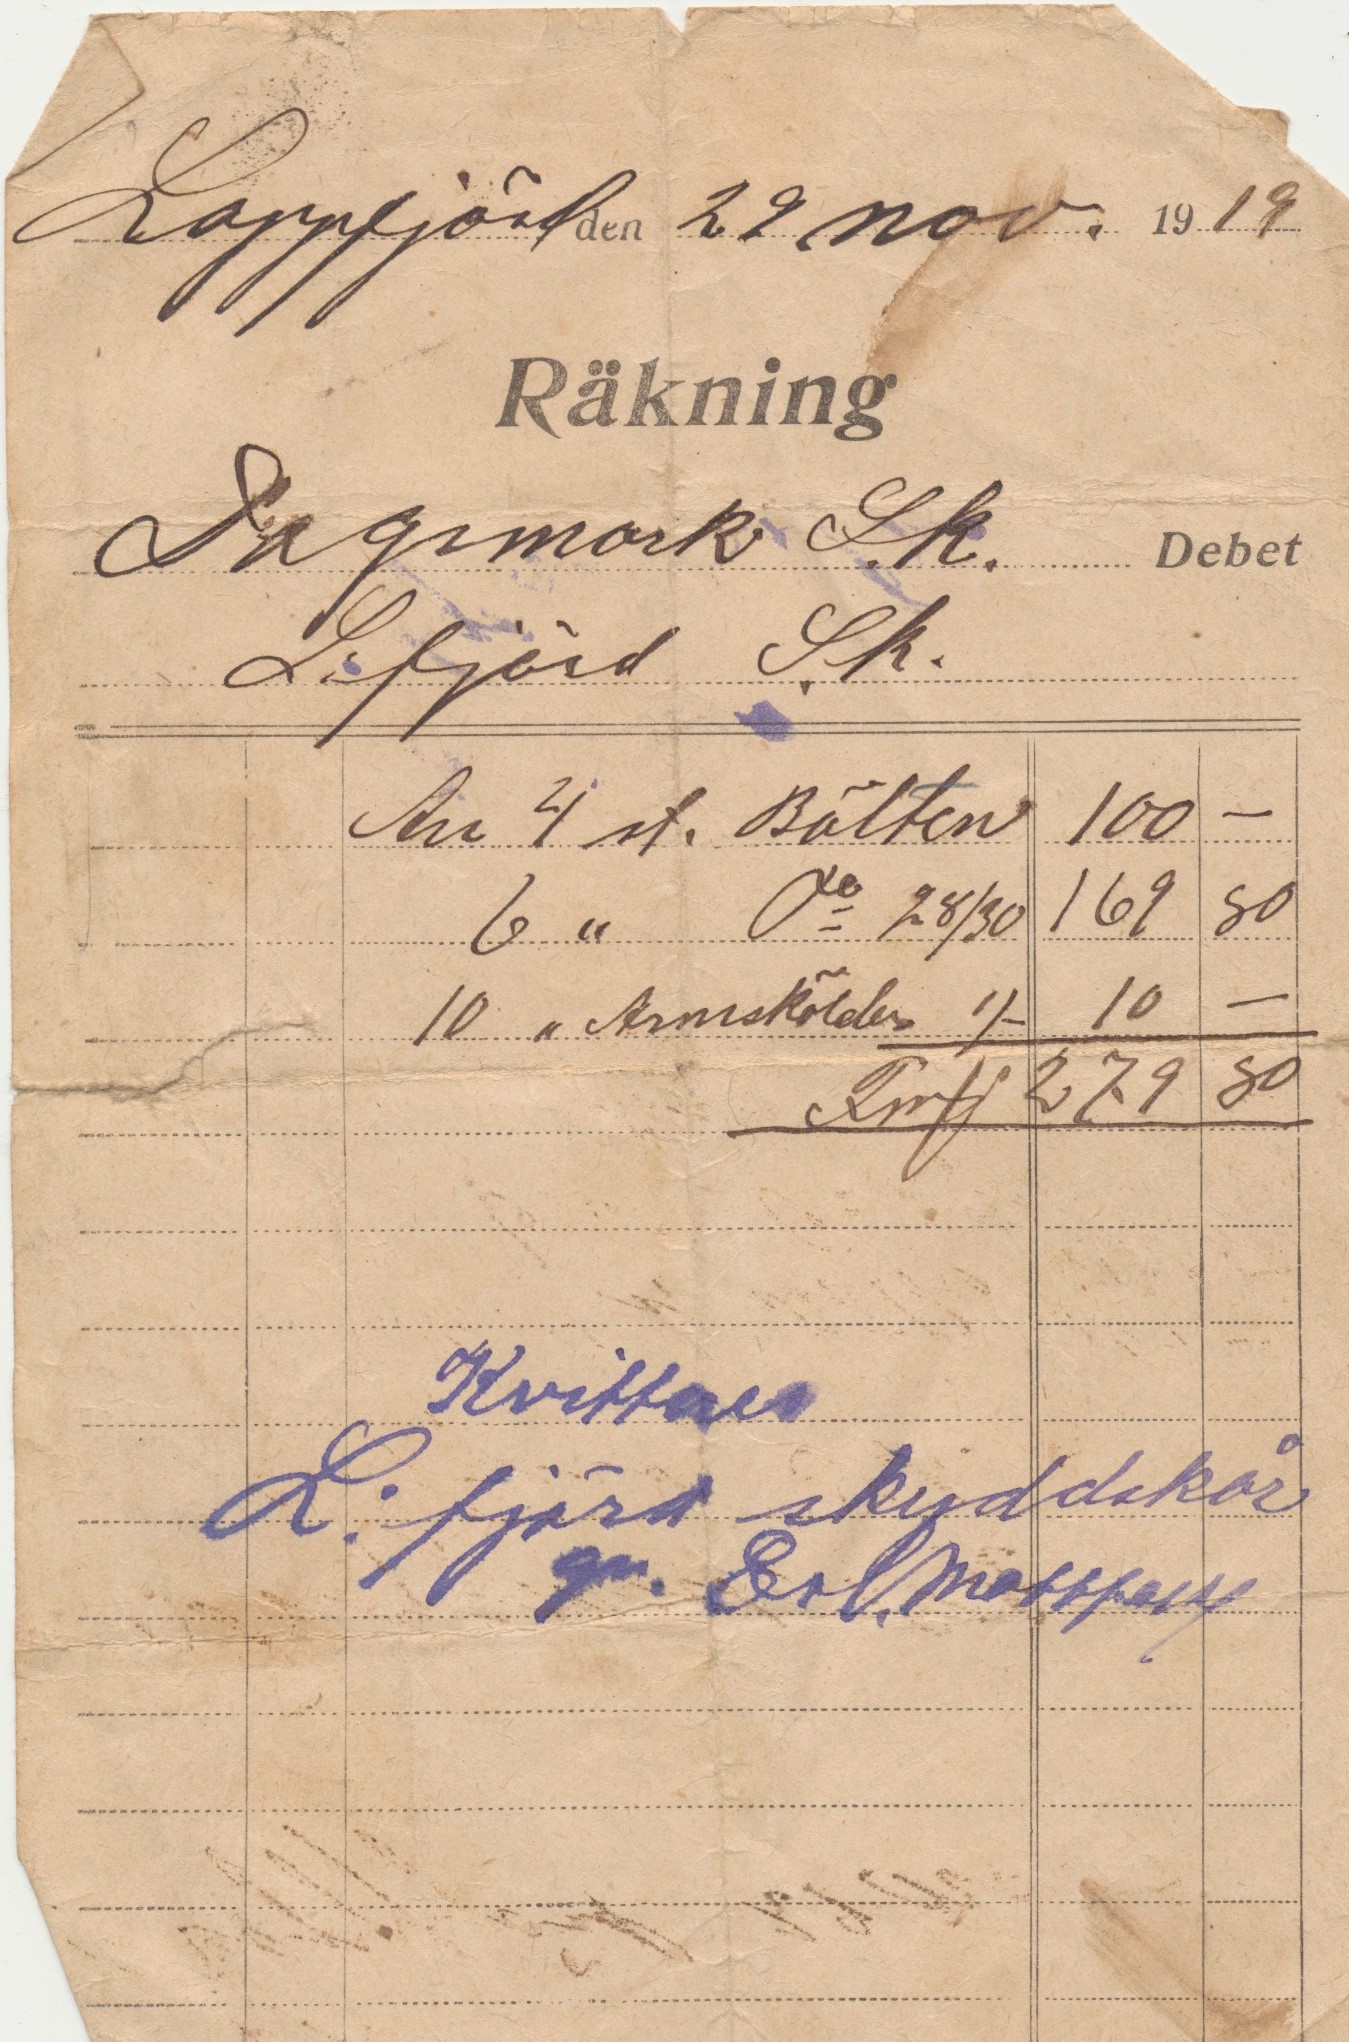 Lappfjärd den 29 nov. 1919
Räkning
Dagsmark S.k. Debet
L:fjärd S.k.
An 4 st. Bälten 100 –
6 " Do 28/30 169 80
10 " Armsköldar 1/- 10 –
Fmk 279 80
Kvitteras
L:fjärd skyddskår
gm. Erl. Mattfolk